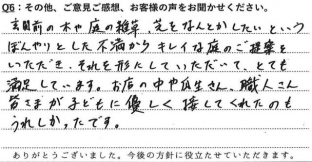 Q6：その他、ご意見ご感想、お客様の声をお聞かせください。
玄関前の木や庭の雑草、芝をなんとかしたいという
ぼんやりとした不満からキレイな庭のご提案を
いただき、それを形にしていただいて、とても
満足しています。お店の中や瓜生さん、職人さん
皆さまが子どもに優しく接してくれたのも
うれしかったです。
ありがとうございました。今後の方針に役立たせていただきます。